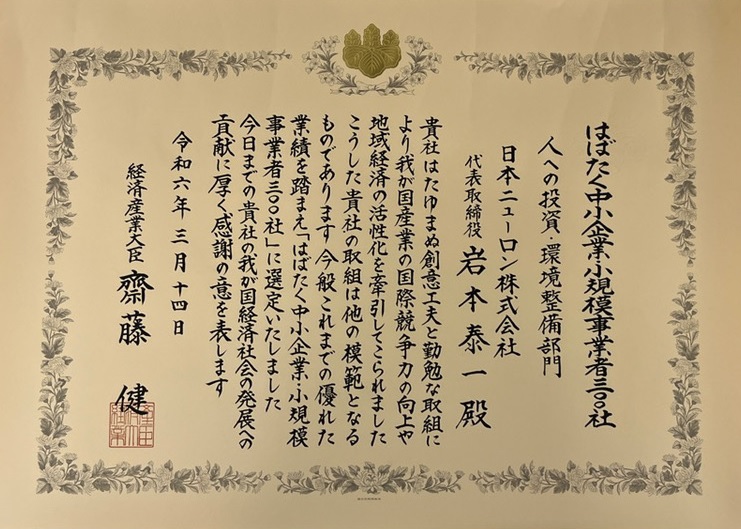 はばたく中小企業・小規模事業者三〇〇社
人への投資・環境整備部門
日本ニューロン株式会社
代表取締役 岩本泰一殿
貴社はたゆまぬ創意工夫と勤勉な取組に
より我が国産業の国際競争力の向上や
地域経済の活性化を牽引してこられました
こうした貴社の取組は他の模範となる
ものであります 今般これまでの優れた
業績を踏まえ「はばたく中小企業・小規模
事業者三〇〇社」に選定いたしました
今日までの貴社の我が国経済社会の発展への
貢献に厚く感謝の意を表します
令和六年三月十四日
経済産業大臣 齋藤 健